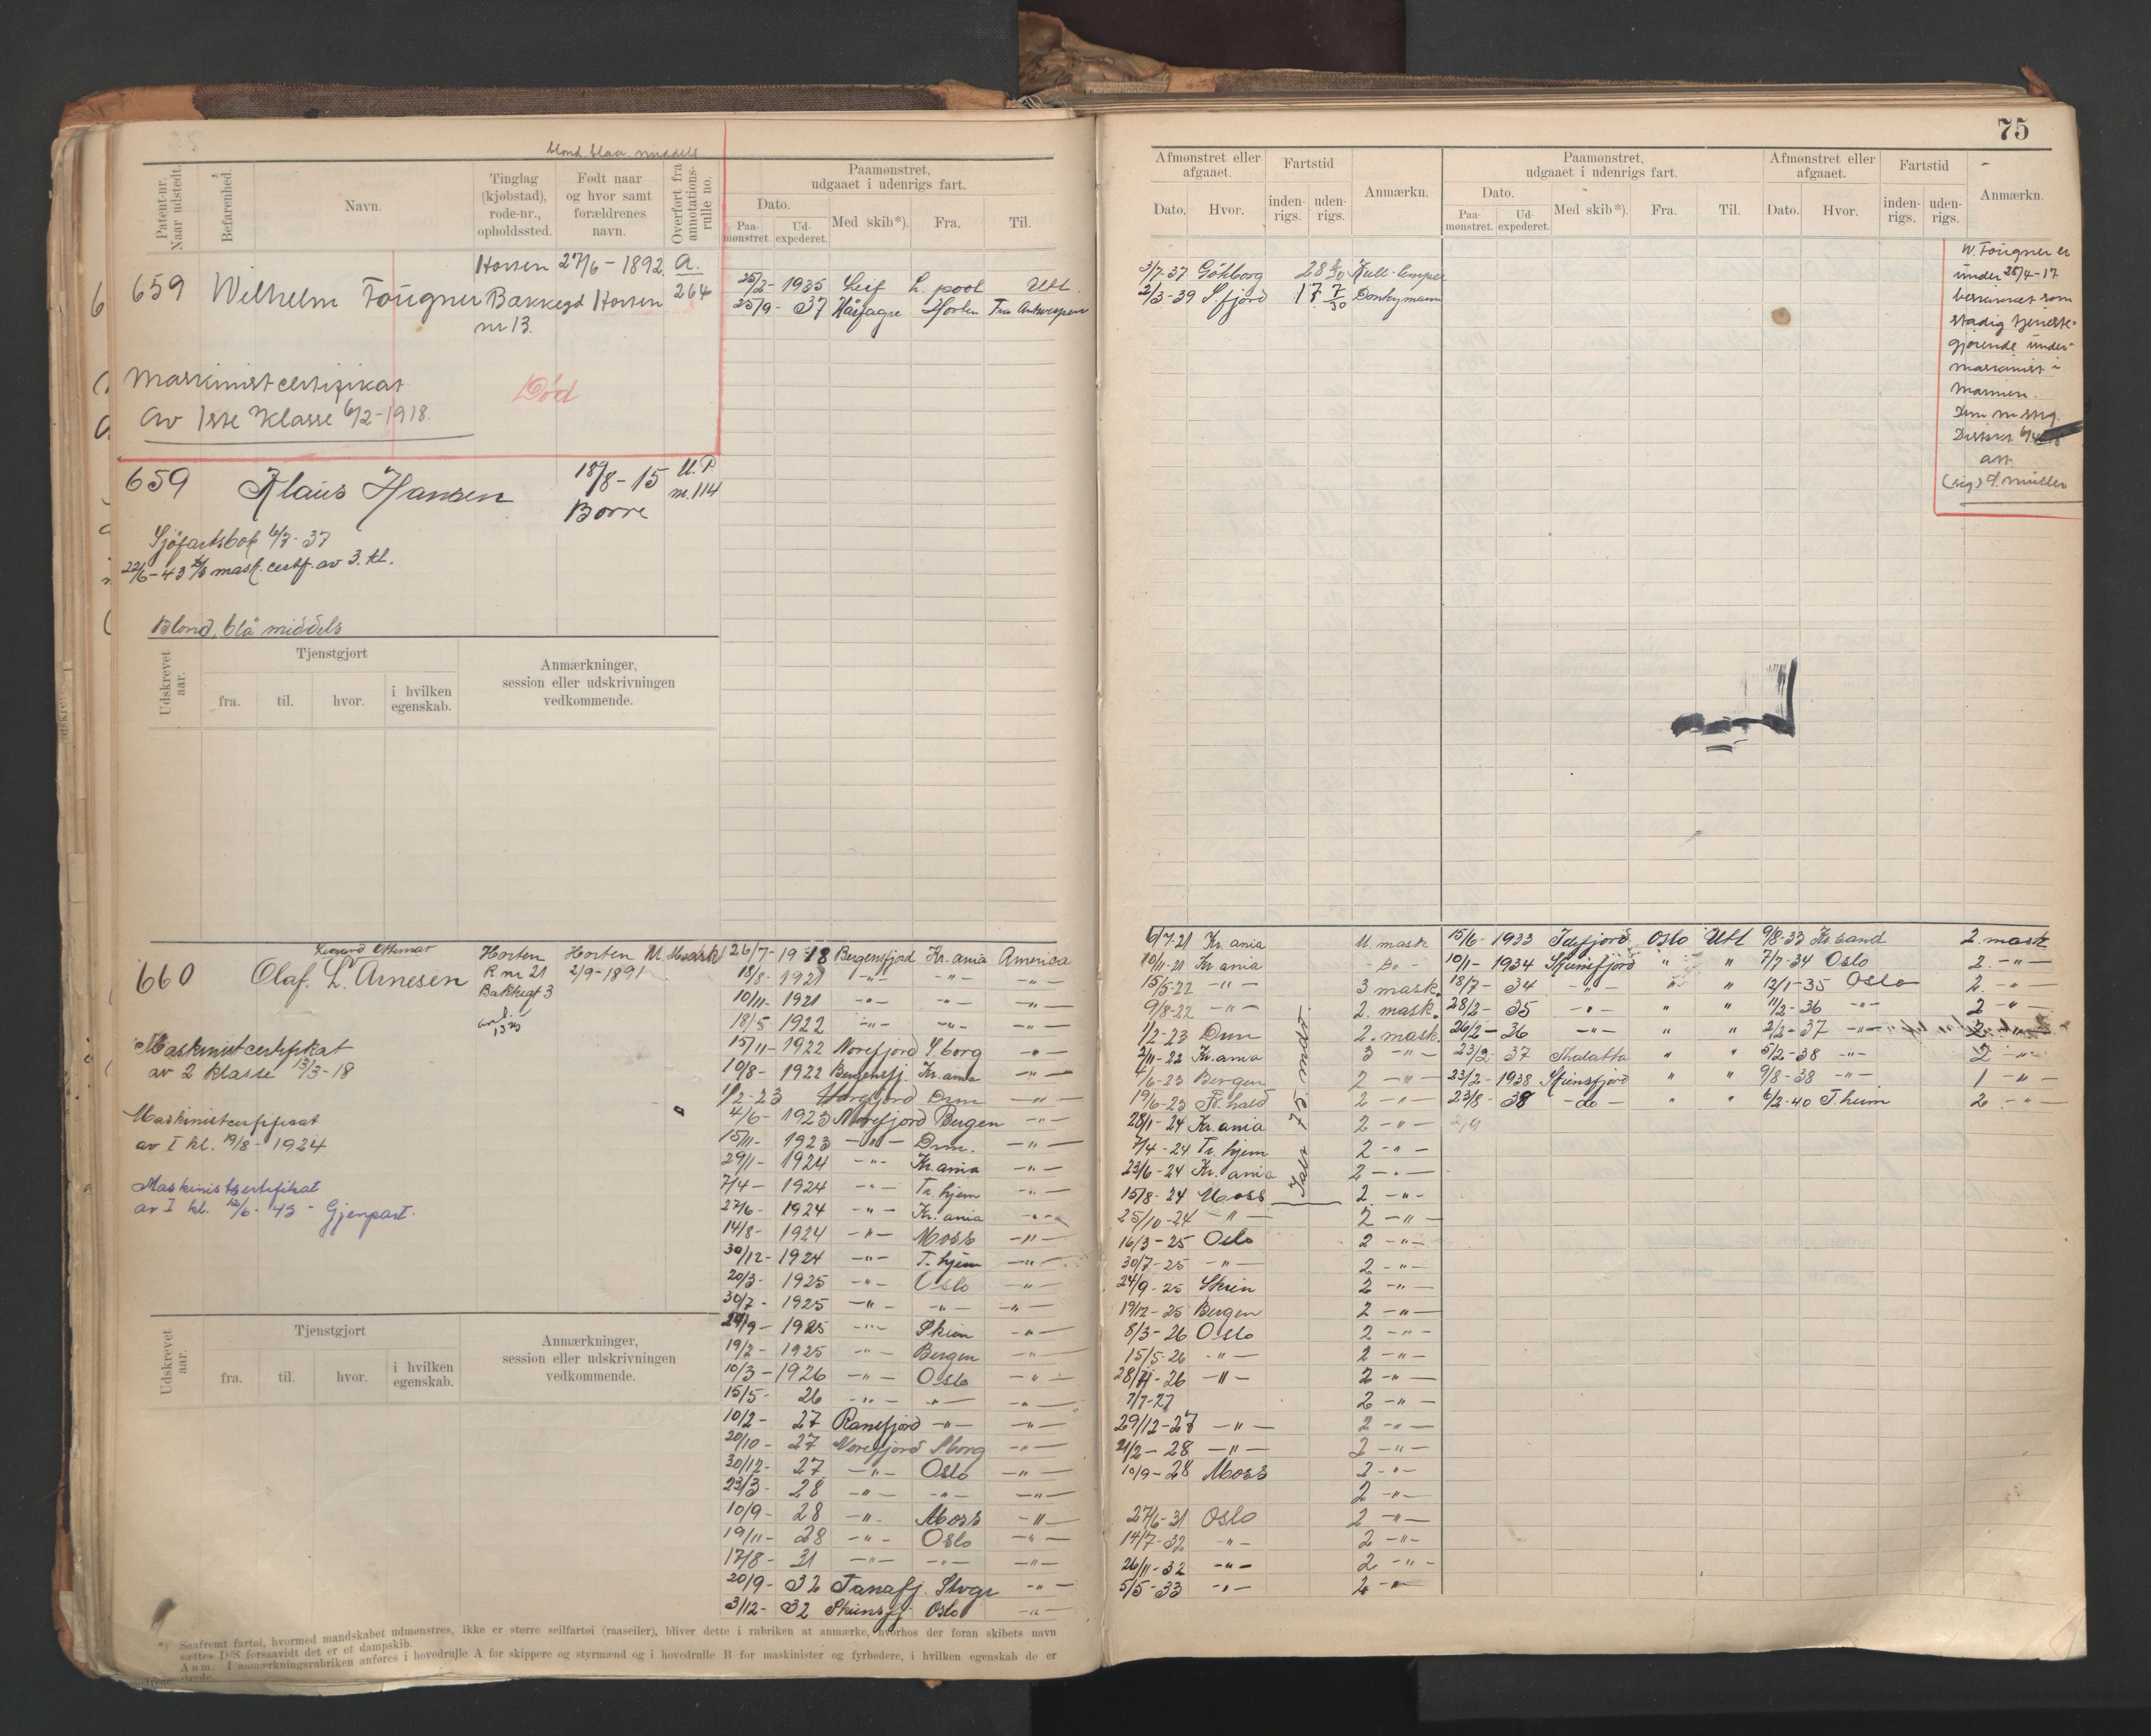 75
blond. blaa. middels
Patent-nr. Naar udstedt.
Befarenhed.
Navn.
Tinglag (kjøbstad), rode-nr., opholdssted.
Født naar og hvor samt forældrenes navn.
Overført fra annotations-rulle no.
Paamønstret, udgaaet i udenrigs fart.
Dato.
Paa-mønstret.
Ud-expederet.
Med skib*).
Fra.
Til.
Afmønstret eller afgaaet.
Dato.
Hvor.
Fartstid
inden-rigs.
uden-rigs.
Anmærkn.
Paamønstret, udgaaet i udenrigs fart.
Dato.
Paa-mønstret.
Ud-expederet.
Med skib*).
Fra.
Til.
Afmønstret eller afgaaet.
Dato.
Hvor.
Fartstid
inden-rigs.
uden-rigs.
Anmærkn.
659 Wilhelm Fougner
Horten
Bakkegd
nr 13.
27/6 - 1892
Horten
A.
264
Maskinistcertifikat
av 1ste Klasse 6/2-1918.
Død
25/2- 1935 Leif L. pool Utl.
25/9- 37 Hårfagre Horten Fra Antwerpen
3/7-37 Götborg 28 Kull-lemper
2/3-39 S.fjord 17 7/30 Donkymann
W. Fougner er
under 25/4-17
beskikket som
stadig tjeneste-
gjørende under-
maskinist i
Marinen.
District
(sig) S. Müller
659 Klaus Hansen
18/8-15
Borre
U.P.
nr. 114
Sjøfartsbok 6/7-37
22/6-43 mask. certf. av 3. kl.
Blond, blå middels
Udskrevet aar.
Tjenstgjort
fra.
til.
hvor.
i hvilken egenskab.
Anmærkninger, session eller udskrivningen vedkommende.
660 Olaf. L. Arnesen
Leonard Othmar
Horten
R nr 21
Bakkegt 3
Horten
2/9-1891
U. Mask
Maskinistcertifikat
av 2 klasse 13/3-18
Maskinistcertifikat
av I kl. 19/8-1924
Maskinistsertifikat
av I kl. 12/6-45 - Gjenpart.
26/7-1918 Bergensfjord Kr. ania America
18/8-1921 -"- -"- -"-
10/11-1921 -"- -"- -"-
18/5-1922 -"- -"- -"-
15/11-1922 Norefjord S.borg -"-
10/8-1922 Bergensfj. Kr. ania -"-
1/2-23 Norefjord Drm -"-
4/6-1923 Norefjord Bergen -"-
15/11-1923 -"- Drm. -"-
29/1-1924 -"- Kr. ania -"-
7/4-1924 -"- Tr. hjem -"-
27/6-1924 -"- Kr. ania -"-
14/8-1924 -"- Moss -"-
30/12-1924 -"- T. hjem -"-
20/3-1925 -"- Oslo -"-
30/7-1925 -"- -"- -"-
24/9-1925 -"- Skien -"-
19/2-1925 -"- Bergen -"-
10/3-1926 -"- Oslo -"-
15/5-26 -"- -"- -"-
10/2-27 Ranefjord -"- -"-
20/10-27 Norefjord S.borg -"-
30/12-27 -"- Oslo -"-
23/3-28 -"- -"- -"-
10/9-28 -"- Moss -"-
19/11-28 -"- Oslo -"-
17/8-31 -"- -"- -"-
20/9-32 Tanafj. Stvgr -"-
3/12-32 Skiensfj Oslo -"-
6/7-21 Kr. ania U. mask
10/11-21 Kr ania - Do -
15/5-22 -"- 3 mask.
9/8-22 -"- 2. mask.
1/2-23 Drm 2. mask
2/11-22 Kr. ania 3 -"-
4/6-23 Bergen 2 -"-
19/6-23 Fr. hald 2 -"-
28/1-24 Kr. ania 2 -"-
7/4-24 Tr. hjem 2 -"-
23/6-24 Kr. ania 2 -"-
15/8-24 Moss 2 -"-
25/10-24 -"- 2 -"-
16/3-25 Oslo 2 -"-
30/7-25 -"- 2 -"-
24/9-25 Skien 2 -"-
19/12-25 Bergen 2 -"-
8/3-26 Oslo 2 -"-
15/5-26 -"- 2 -"-
28/11-26 -"- 2 -"-
7/7-27 2 -"-
29/12-27 -"- 2 -"-
21/2-28 -"- 2 -"-
10/9-28 Moss 2 -"-
2 -"-
27/6-31 Oslo 2 -"-
14/7-32 -"- 2 -"-
26/11-32 -"- 2 -"-
5/5-33 -"- 2 -"-
Ialt 75. mdr.
15/6-1933 Idefjord Oslo Utl 9/8-33 Kr. sand 2. mask
10/11-1934 Skiensfjord " " 7/7-34 Oslo 2. -"-
18/7-34 -"- " " 12/1-35 Oslo 2. -"-
28/2-35 -"- " " 11/2-36 -"- 2 -"-
26/2-36 -"- " " 2/2-37 -"- 2 -"-
23/2-37 Thalatta " " 5/2-38 -"- 2 -"-
23/2-1938 Skiensfjord " " 9/8-38 -"- 1 -"-
23/8-38 -do- " " 6/2-40 T. heim 2. -"-
Udskrevet aar.
Tjenstgjort
fra.
til.
hvor.
i hvilken egenskab.
Anmærkninger, session eller udskrivningen vedkommende.
*) Saafremt fartøi, hvormed mandskabet udmønstres, ikke er større seilfartøi (raaseiler), bliver dette i rubriken at anmærke, hvorhos der foran skibets navn
sættes D/S forsaavidt det er et dampskib.
Anm. I anmærkningsrubriken anføres i hovedrulle A for skippere og styrmænd og i hovedrulle B for maskinister og fyrbødere, i hvilken egenskab de er